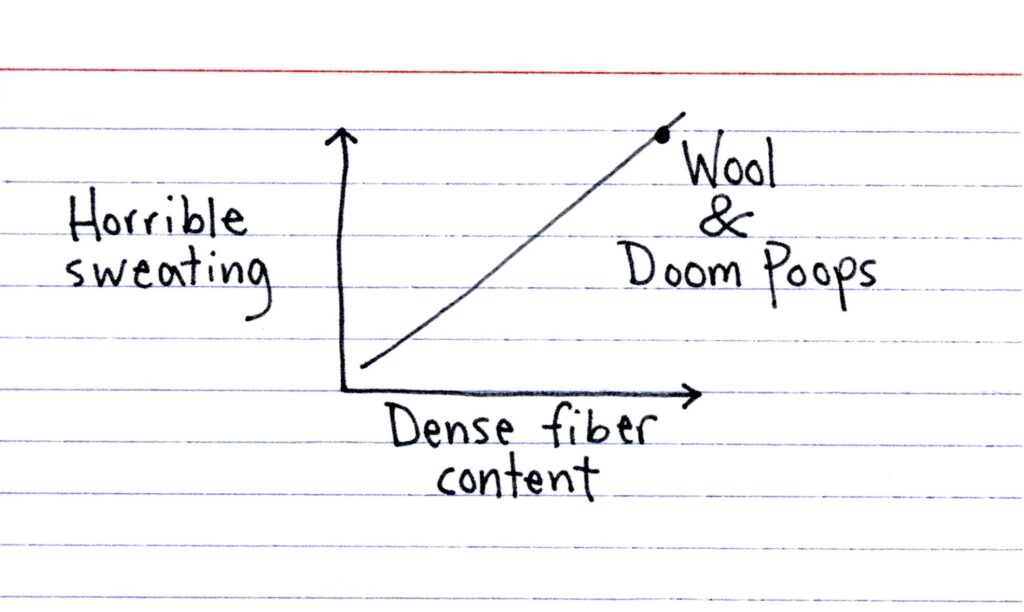 Horrible
sweating
Wool
&
Doom Poops
Dense fiber
content